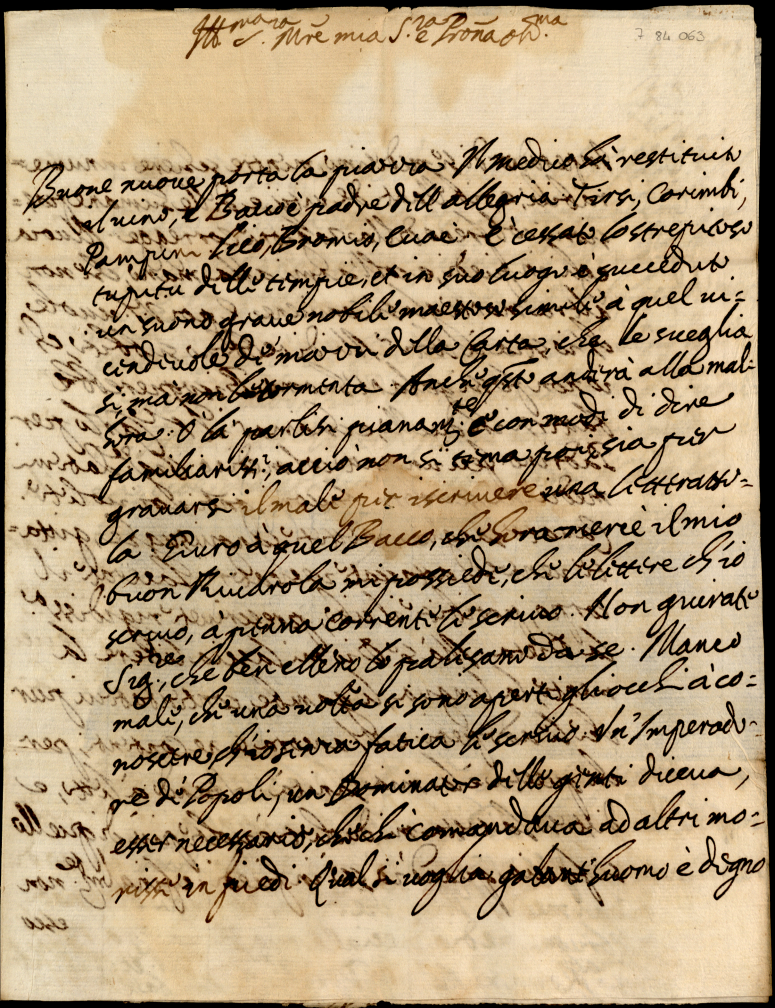 Ill.ma S.ra Mre mia S.ra e Proña oss.ma
7 84 063
Buone nuove porta la piazza Il medico hà restituito
il vino, e Bacco è padre dell allegria Tirsi, Corimbi,
Pampini Lieo, Bromio, Evae è cessato lo strepitoso
delle timpie, et in suo luogo è succeduto
un suono grave nobile maestoso simile à quel vi=
cendevole de' mazzi della Carta, che le sveglia
si, ma non le tormenta. Anche q.sto andirà alla mal=
hora. O la parlisi pianam.te e con modi di dire
familiariss.i, acciò non si stima poesia per
gravarsi il male per iscrivere una letterazzo=
la Giuro à quel Bacco, che hora mercè il mio
buon mi possiede, che le lettere ch'io
scrivo, à penna corrente le scrivo. Non giurate
Sig.re, che ben elleno lo palisano da se. Manco
male, che una volta si sono aperti gli occhi à co=
noscere ch'io senza fatica le scrivo. Un' Imperado=
re de' Popoli, un Dominator delle genti diceva,
esser necessario, che chi comandava ad altri mo=
risse in piedi Qual si voglia galant'huomo è degno